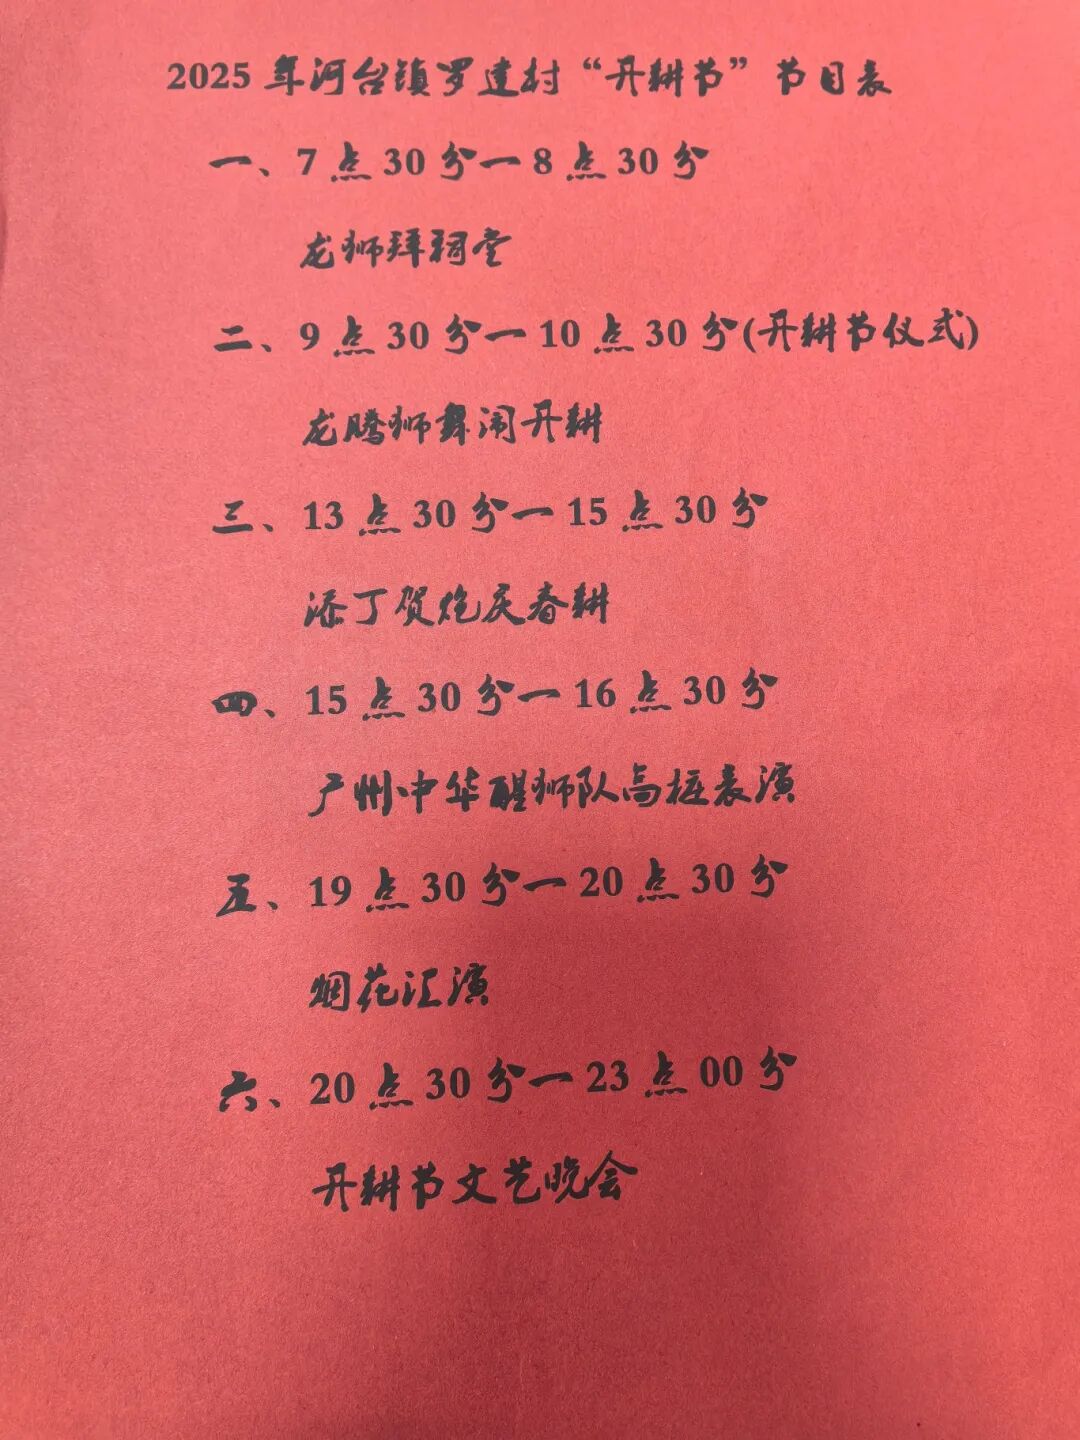 2025年河台镇罗建村“开耕节”节目表
一、7点30分一8点30分
龙狮拜祠堂
二、9点30分一10点30分(开耕节仪式)
龙腾狮舞闹开耕
三、13点30分一15点30分
添丁贺炮庆春耕
四、15点30分一16点30分
广州中华醒狮队高桩表演
五、19点30分一20点30分
烟花汇演
六、20点30分一23点00分
开耕节文艺晚会